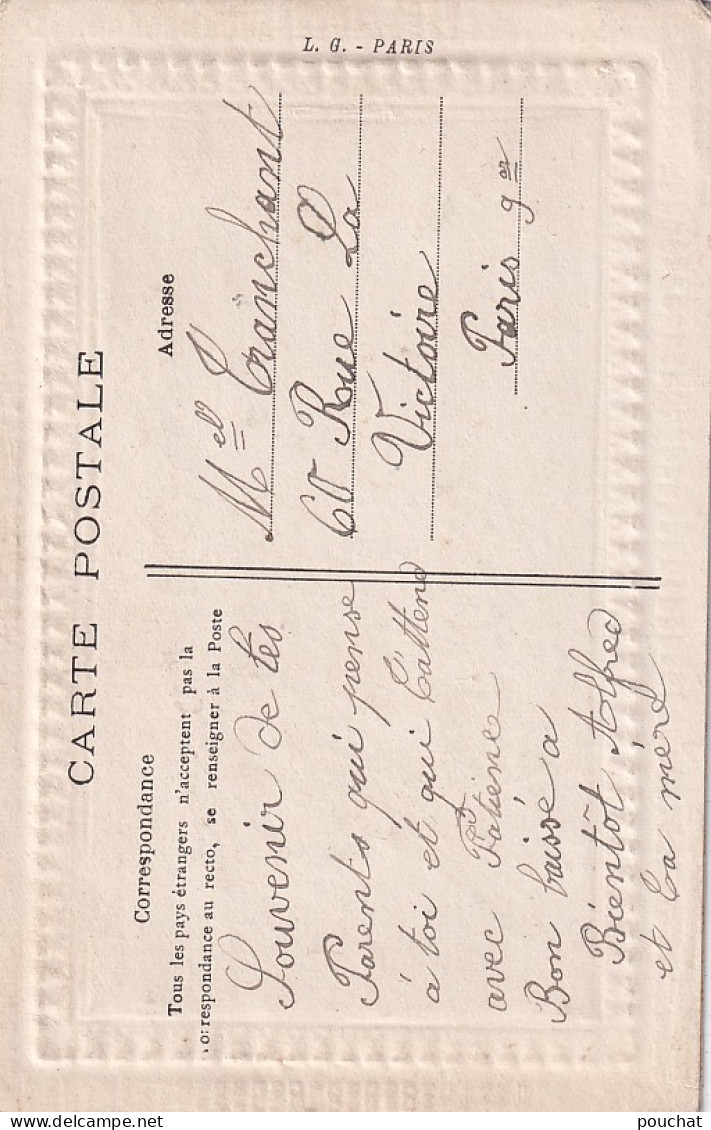 L. G. - PARIS
CARTE POSTALE
Correspondance
Tous les pays étrangers n'acceptent pas la
correspondance au recto, se renseigner à la Poste
Souvenir de tes
Parents qui pense
à toi et qui t'attend
avec Patience
Bon baisse a
Bientôt Alfred
et ta mère
Adresse
Mell Tranchant
60 Rue La
Victoire
Paris 9er
pouchat
delcampe.net